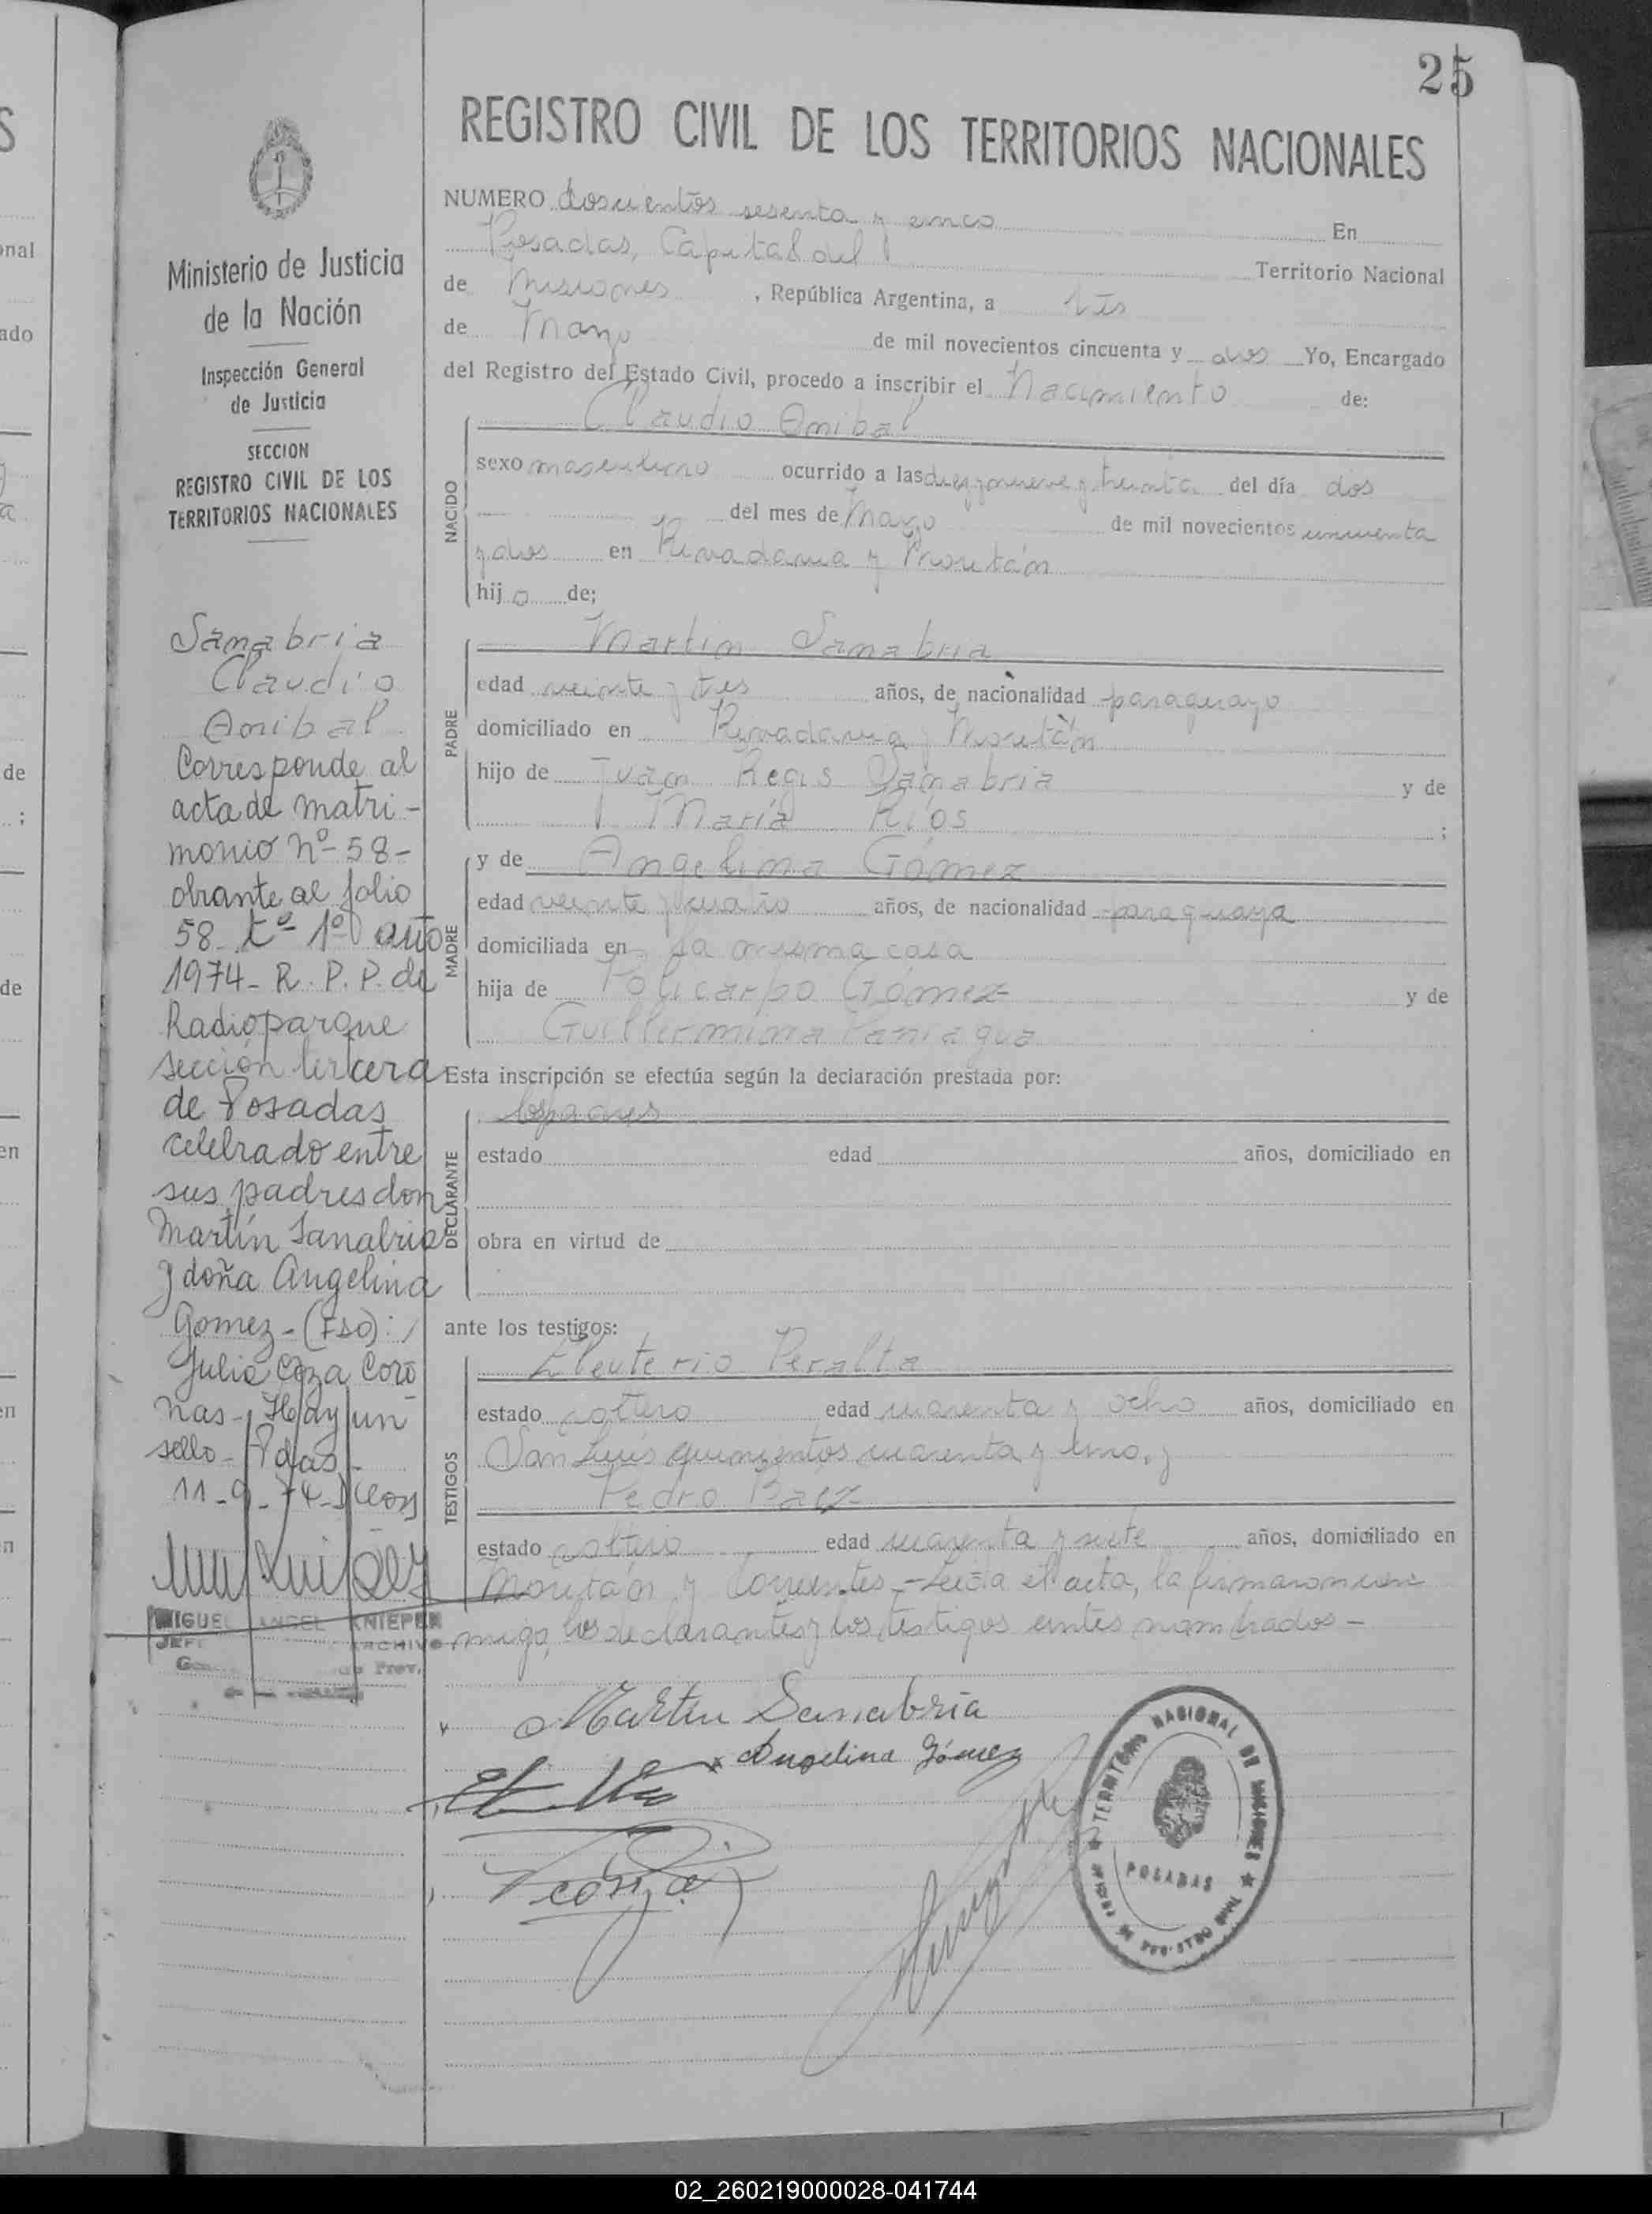 25
REGISTRO CIVIL DE LOS TERRITORIOS NACIONALES
NUMERO doscientos sesenta y cinco En
Posadas, Capital del Territorio Nacional
de Misiones, República Argentina, a tres
de Mayo de mil novecientos cincuenta y dos Yo, Encargado
del Registro del Estado Civil, procedo a inscribir el Nacimiento de:
Claudio Anibal
NACIDO
sexo masculino ocurrido a las diez y nueve y treinta del día dos
del mes de Mayo de mil novecientos cincuenta
y dos en Rivadavia y Moritán
hijo de;
PADRE
Martin Sanabria
edad veinte y tres años, de nacionalidad paraguayo
domiciliado en Rivadavia y Moritán
hijo de Juan Regis Sanabria y de
María Ríos ;
MADRE
y de Angelina Gómez
edad veinte y cuatro años, de nacionalidad paraguaya
domiciliada en la misma casa
hija de Policarpo Gómez y de
Guillermina Paniagua
Esta inscripción se efectúa según la declaración prestada por:
DECLARANTE
los padres
estado edad años, domiciliado en
obra en virtud de
ante los testigos:
TESTIGOS
Eleuterio Peralta
estado soltero edad cuarenta y ocho años, domiciliado en
San Luis quinientos cuarenta y uno, y
Pedro Baez
estado soltero edad cuarenta y siete años, domiciliado en
Moritán y Corrientes.- Leída el acta, la firmaron con
migo, los declarantes y los testigos antes nombrados -
Martin Sanabria
Angelina Gómez
TERRITORIO NACIONAL DE MISIONES
POSADAS
Ministerio de Justicia
de la Nación
Inspección General
de Justicia
SECCION
REGISTRO CIVIL DE LOS
TERRITORIOS NACIONALES
Sanabria
Claudio
Anibal
Corresponde al
acta de matri-
monio Nº 58-
obrante al folio
58 tº 1º año
1974- R. P. P. de
Radioparque
sección tercera
de Posadas
celebrado entre
sus padres don
Martín Sanabria
y doña Angelina
Gomez - (FDO):
Julia Coro
nas - Hay un
sello - Pdas -
11-9-74-
MIGUEL ANGEL KNIEPER
JEFE ARCHIVO
Prov.
nal
ado
de
;
de
en
en
en
n
02_260219000028-041744